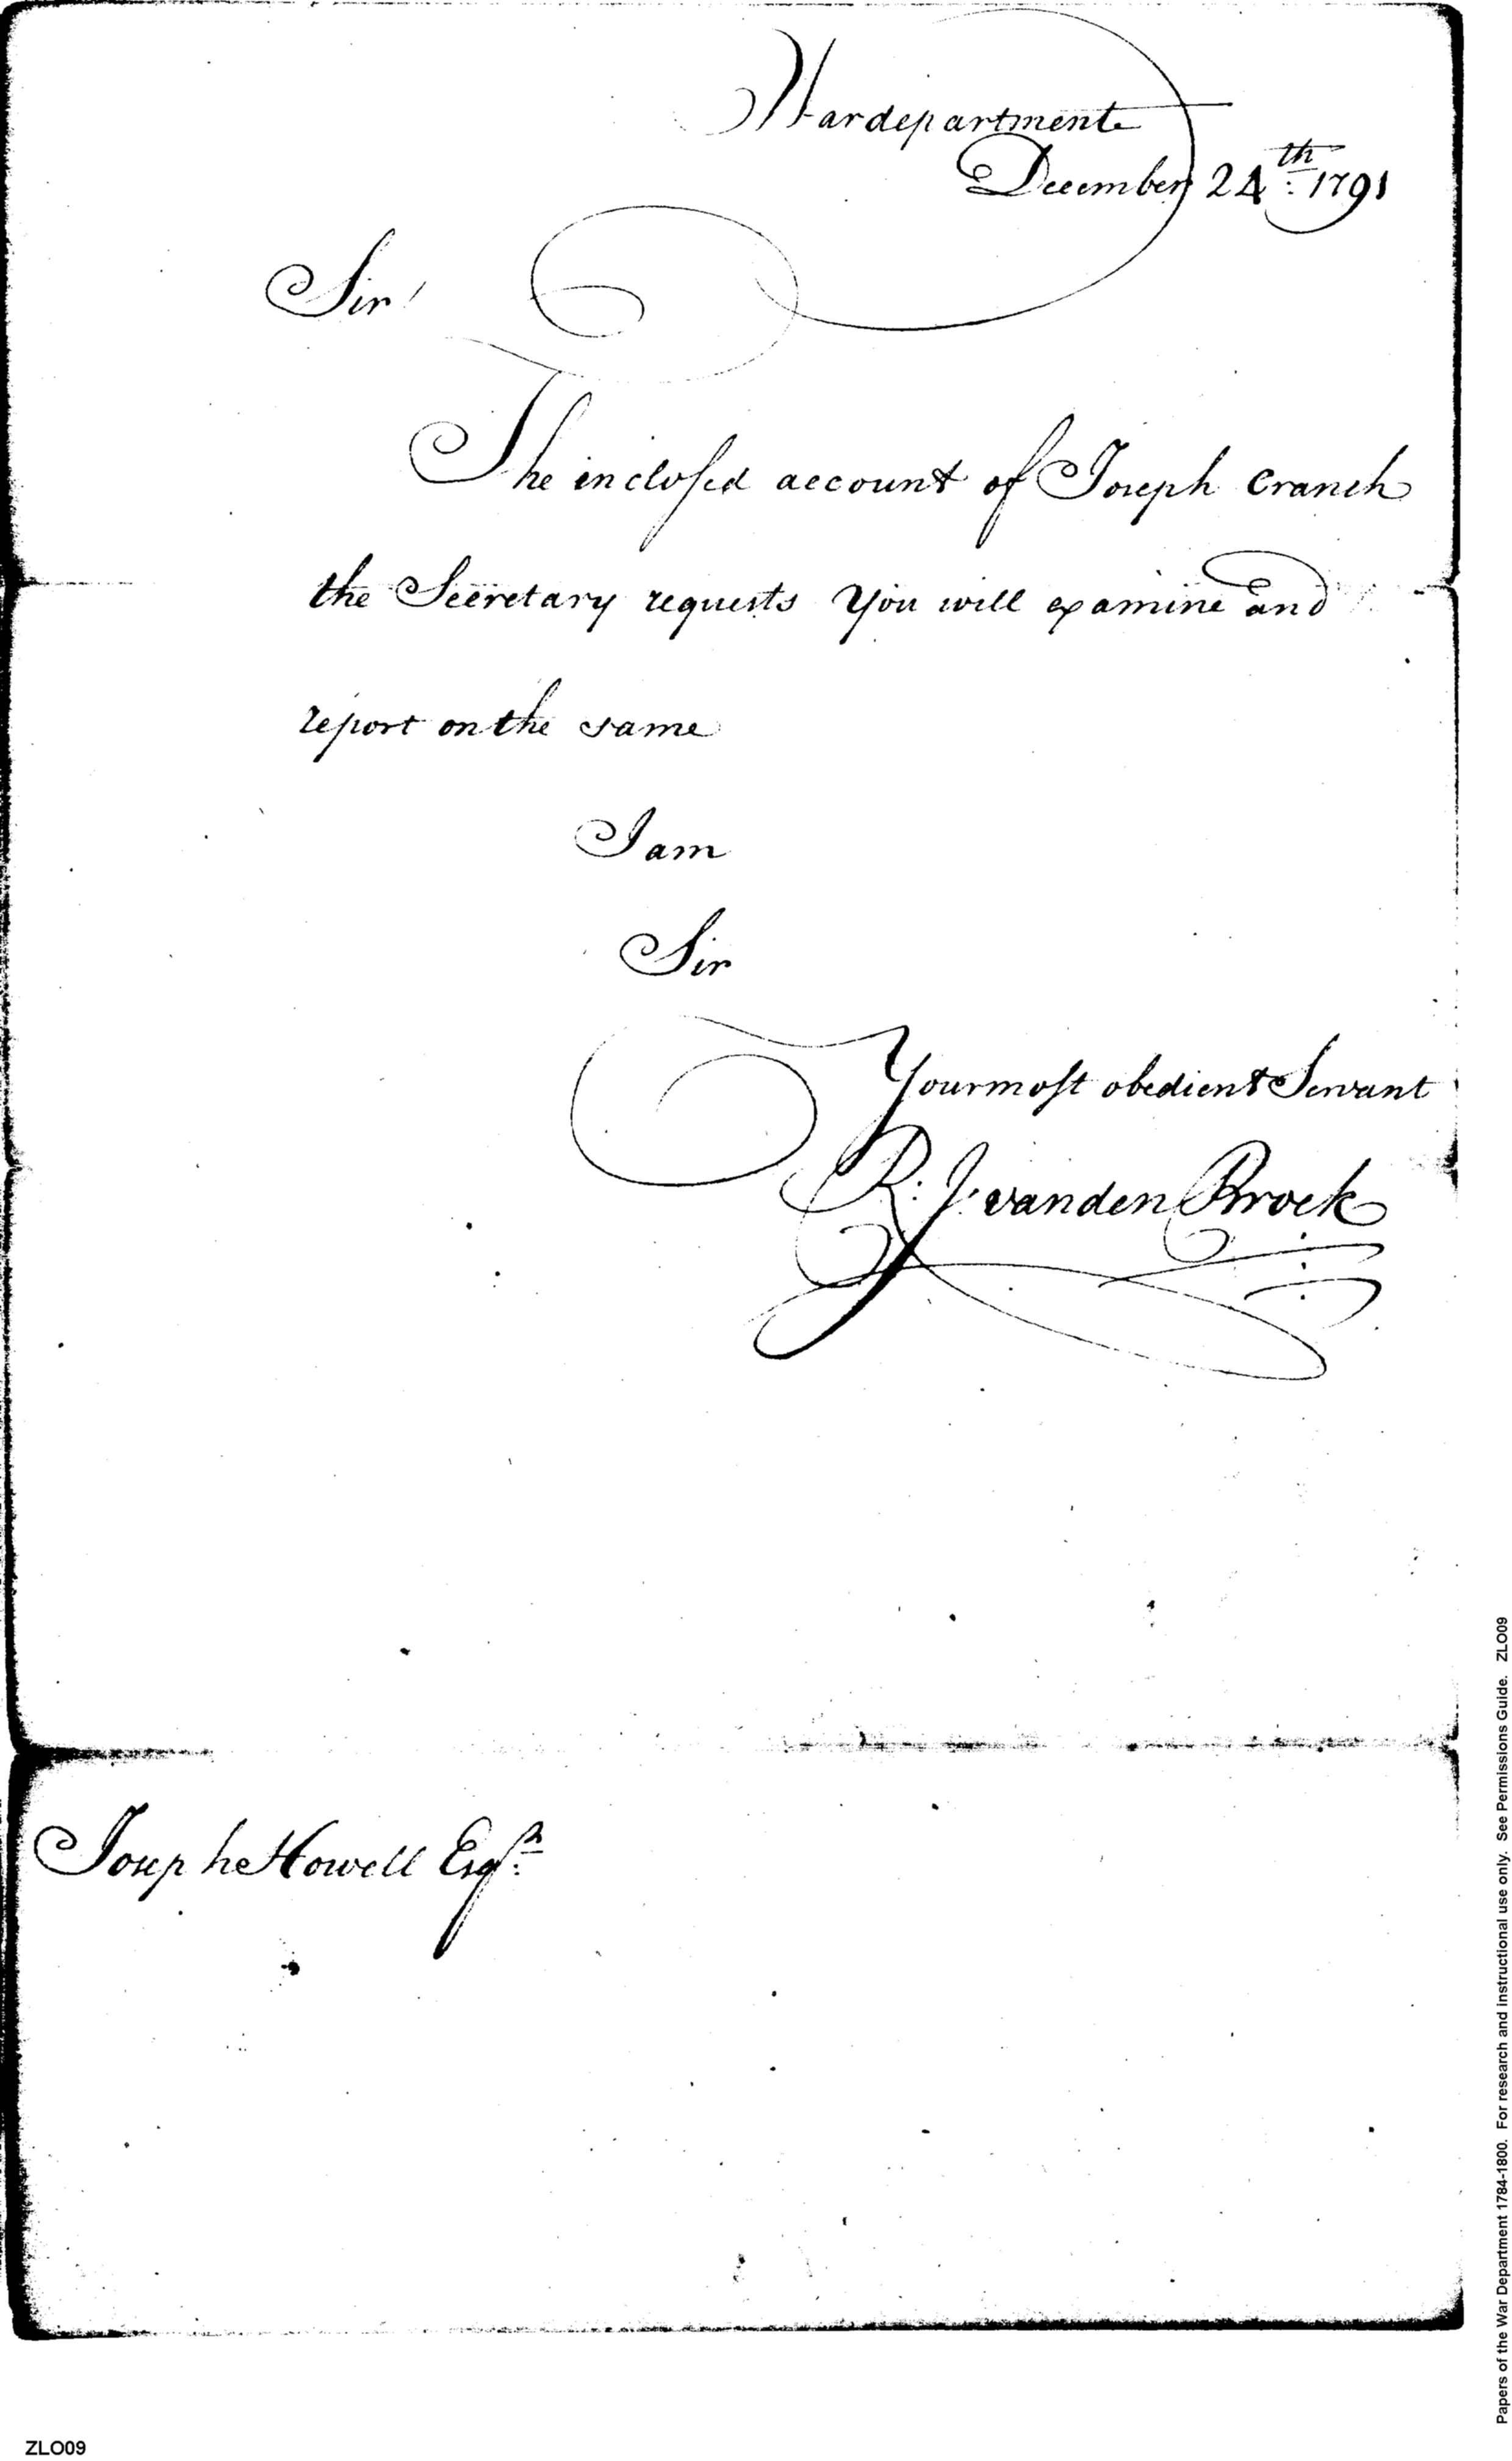 Wardepartment
December 24th: 1791
Sir!
The inclosed account of Joseph Cranch
the Secretary requests You will examine and
report on the same
I am
Sir
Your most obedient Servant
R: J: vanden Broek
Joseph Howell Esqr:
Papers of the War Department 1784-1800. For research and instructional use only. See Permissions Guide. ZLO09
ZLO09